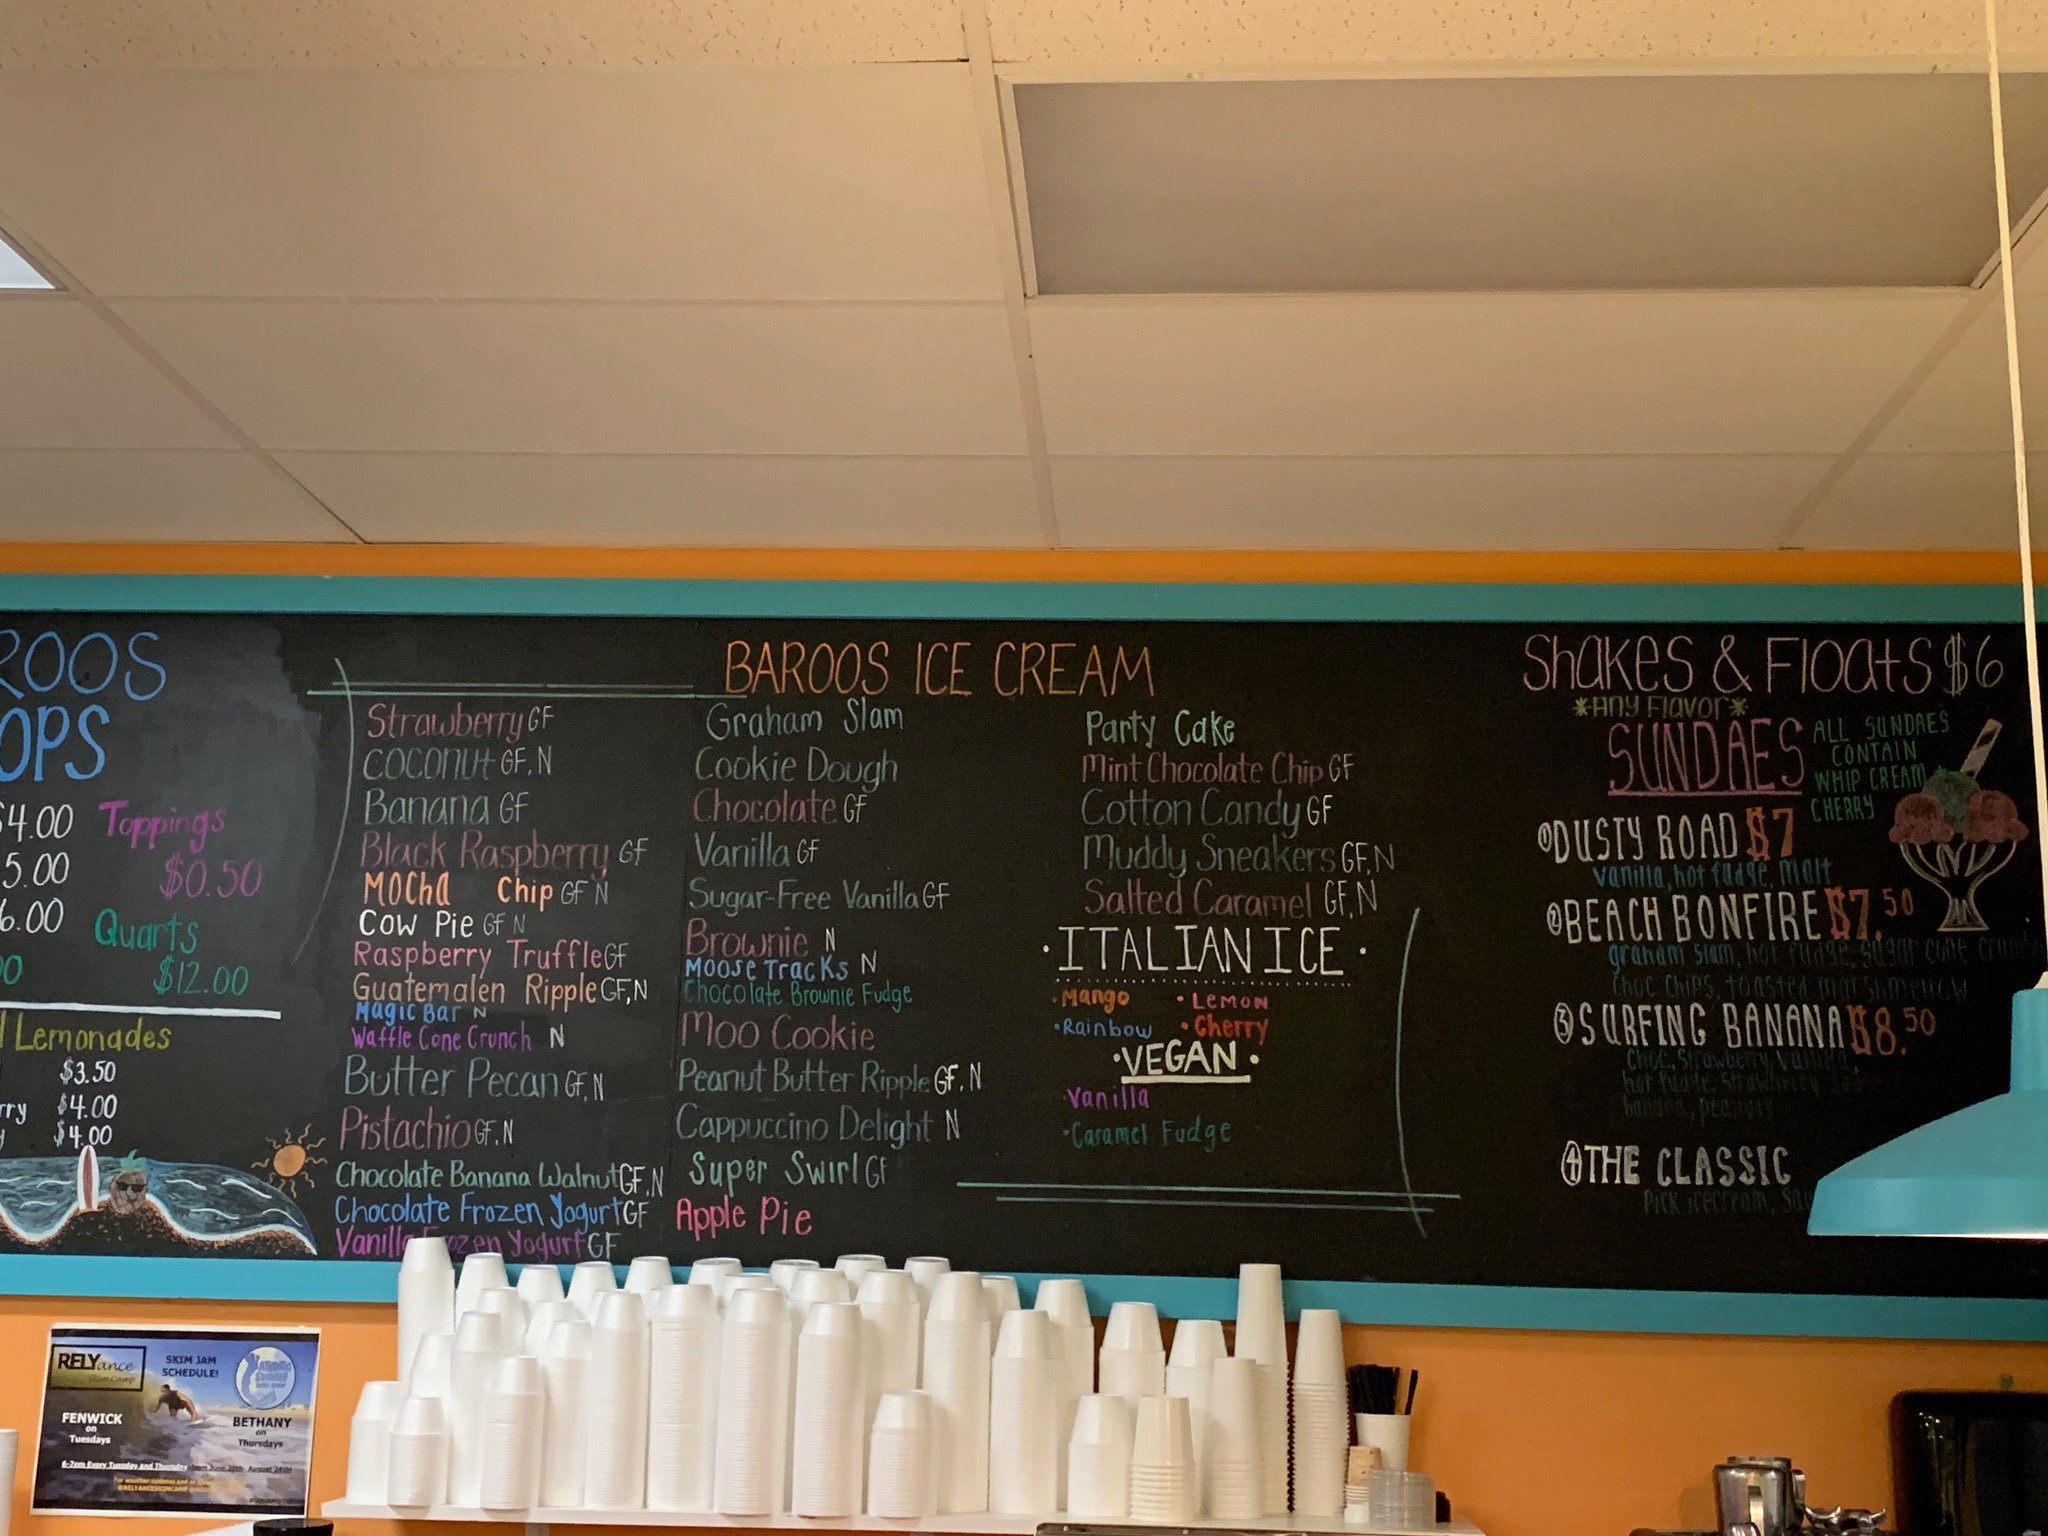 ROOS
OPS
$4.00
5.00
6.00
00
Toppings
$0.50
Quarts
$12.00
Lemonades
$3.50
rry $4.00
y $4.00
BAROOS ICE CREAM
Strawberry GF
Coconut GF, N
Banana GF
Black Raspberry GF
Mocha Chip GF N
Cow Pie GF N
Raspberry Truffle GF
Guatemalen Ripple GF, N
Magic Bar N
Waffle Cone Crunch N
Butter Pecan GF, N
Pistachio GF, N
Chocolate Banana Walnut GF, N
Chocolate Frozen Yogurt GF
Vanilla Frozen Yogurt GF
Graham Slam
Cookie Dough
Chocolate GF
Vanilla GF
Sugar-Free Vanilla GF
Brownie N
Moose Tracks N
Chocolate Brownie Fudge
Moo Cookie
Peanut Butter Ripple GF, N
Cappuccino Delight N
Super Swirl GF
Apple Pie
Party Cake
Mint Chocolate Chip GF
Cotton Candy GF
Muddy Sneakers GF, N
Salted Caramel GF, N
• ITALIAN ICE •
• Mango • Lemon
• Rainbow • Cherry
• VEGAN •
• Vanilla
• Caramel Fudge
Shakes & Floats $6
*Any Flavor*
SUNDAES
ALL SUNDAES
CONTAIN
WHIP CREAM +
CHERRY
① DUSTY ROAD $7
vanilla, hot fudge, malt
② BEACH BONFIRE $7.50
graham slam, hot fudge, sugar cone
choc. chips, toasted marshmellow
③ SURFING BANANA $8.50
choc, strawberry, vanilla,
hot fudge, strawberry
banana, peanuts
④ THE CLASSIC
Pick icecream,
RELYance
Skim Camp
SKIM JAM
SCHEDULE!
FENWICK
on
Tuesdays
BETHANY
on
Thursdays
6-7pm Every Tuesday and Thursday from June 20th- August 24th!